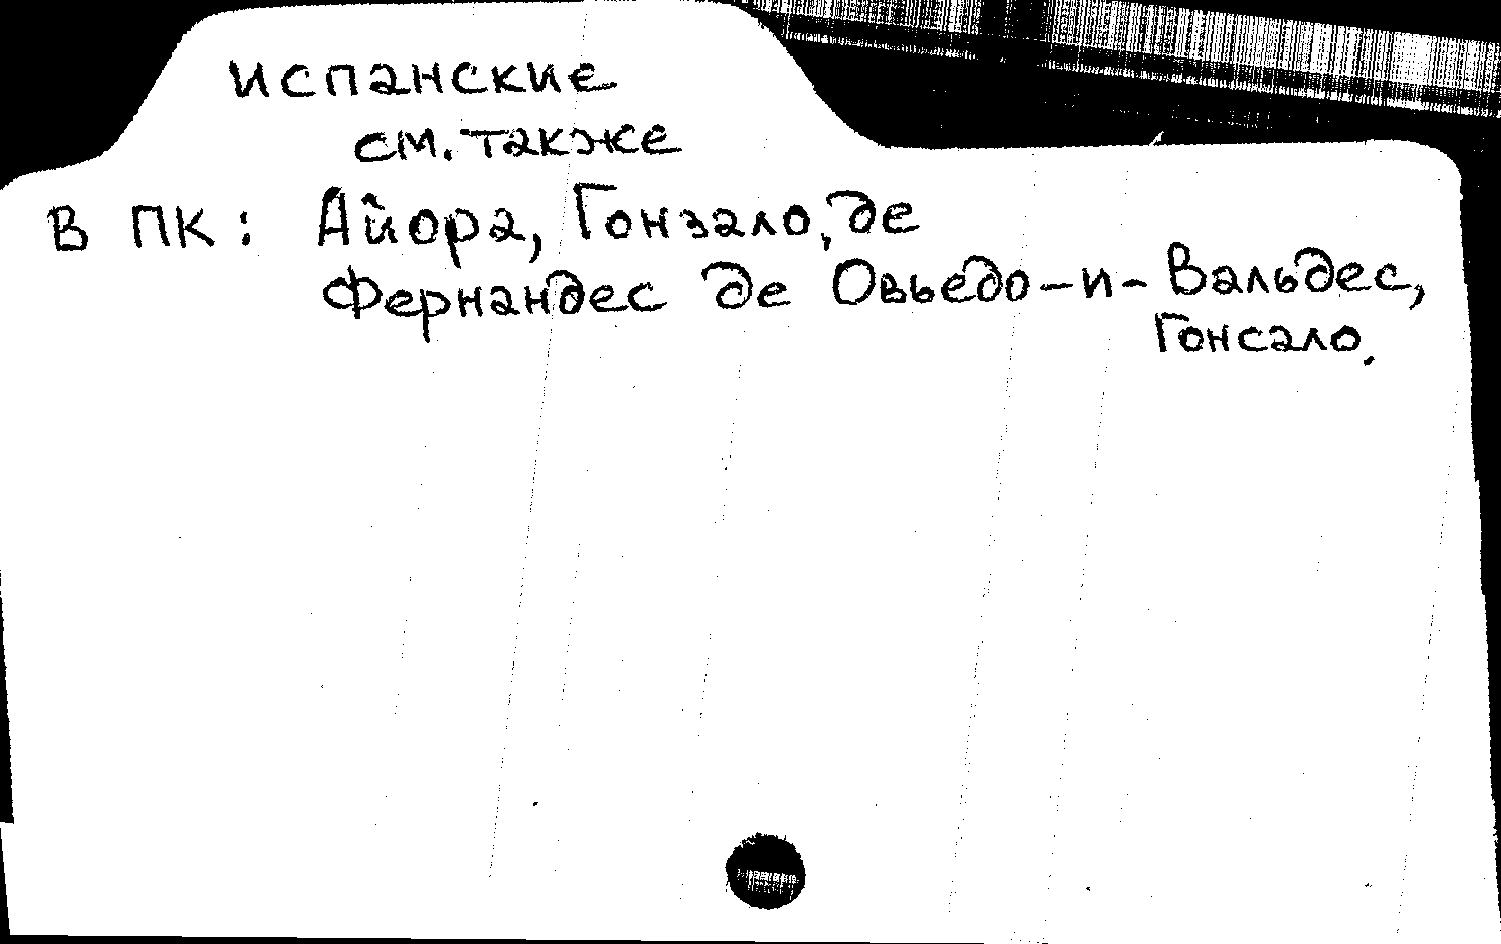 испанские
см. также
В ПК: Айора, Гонзало, де
Фернандес де Овьедо-и-Вальдес,
Гонсало.